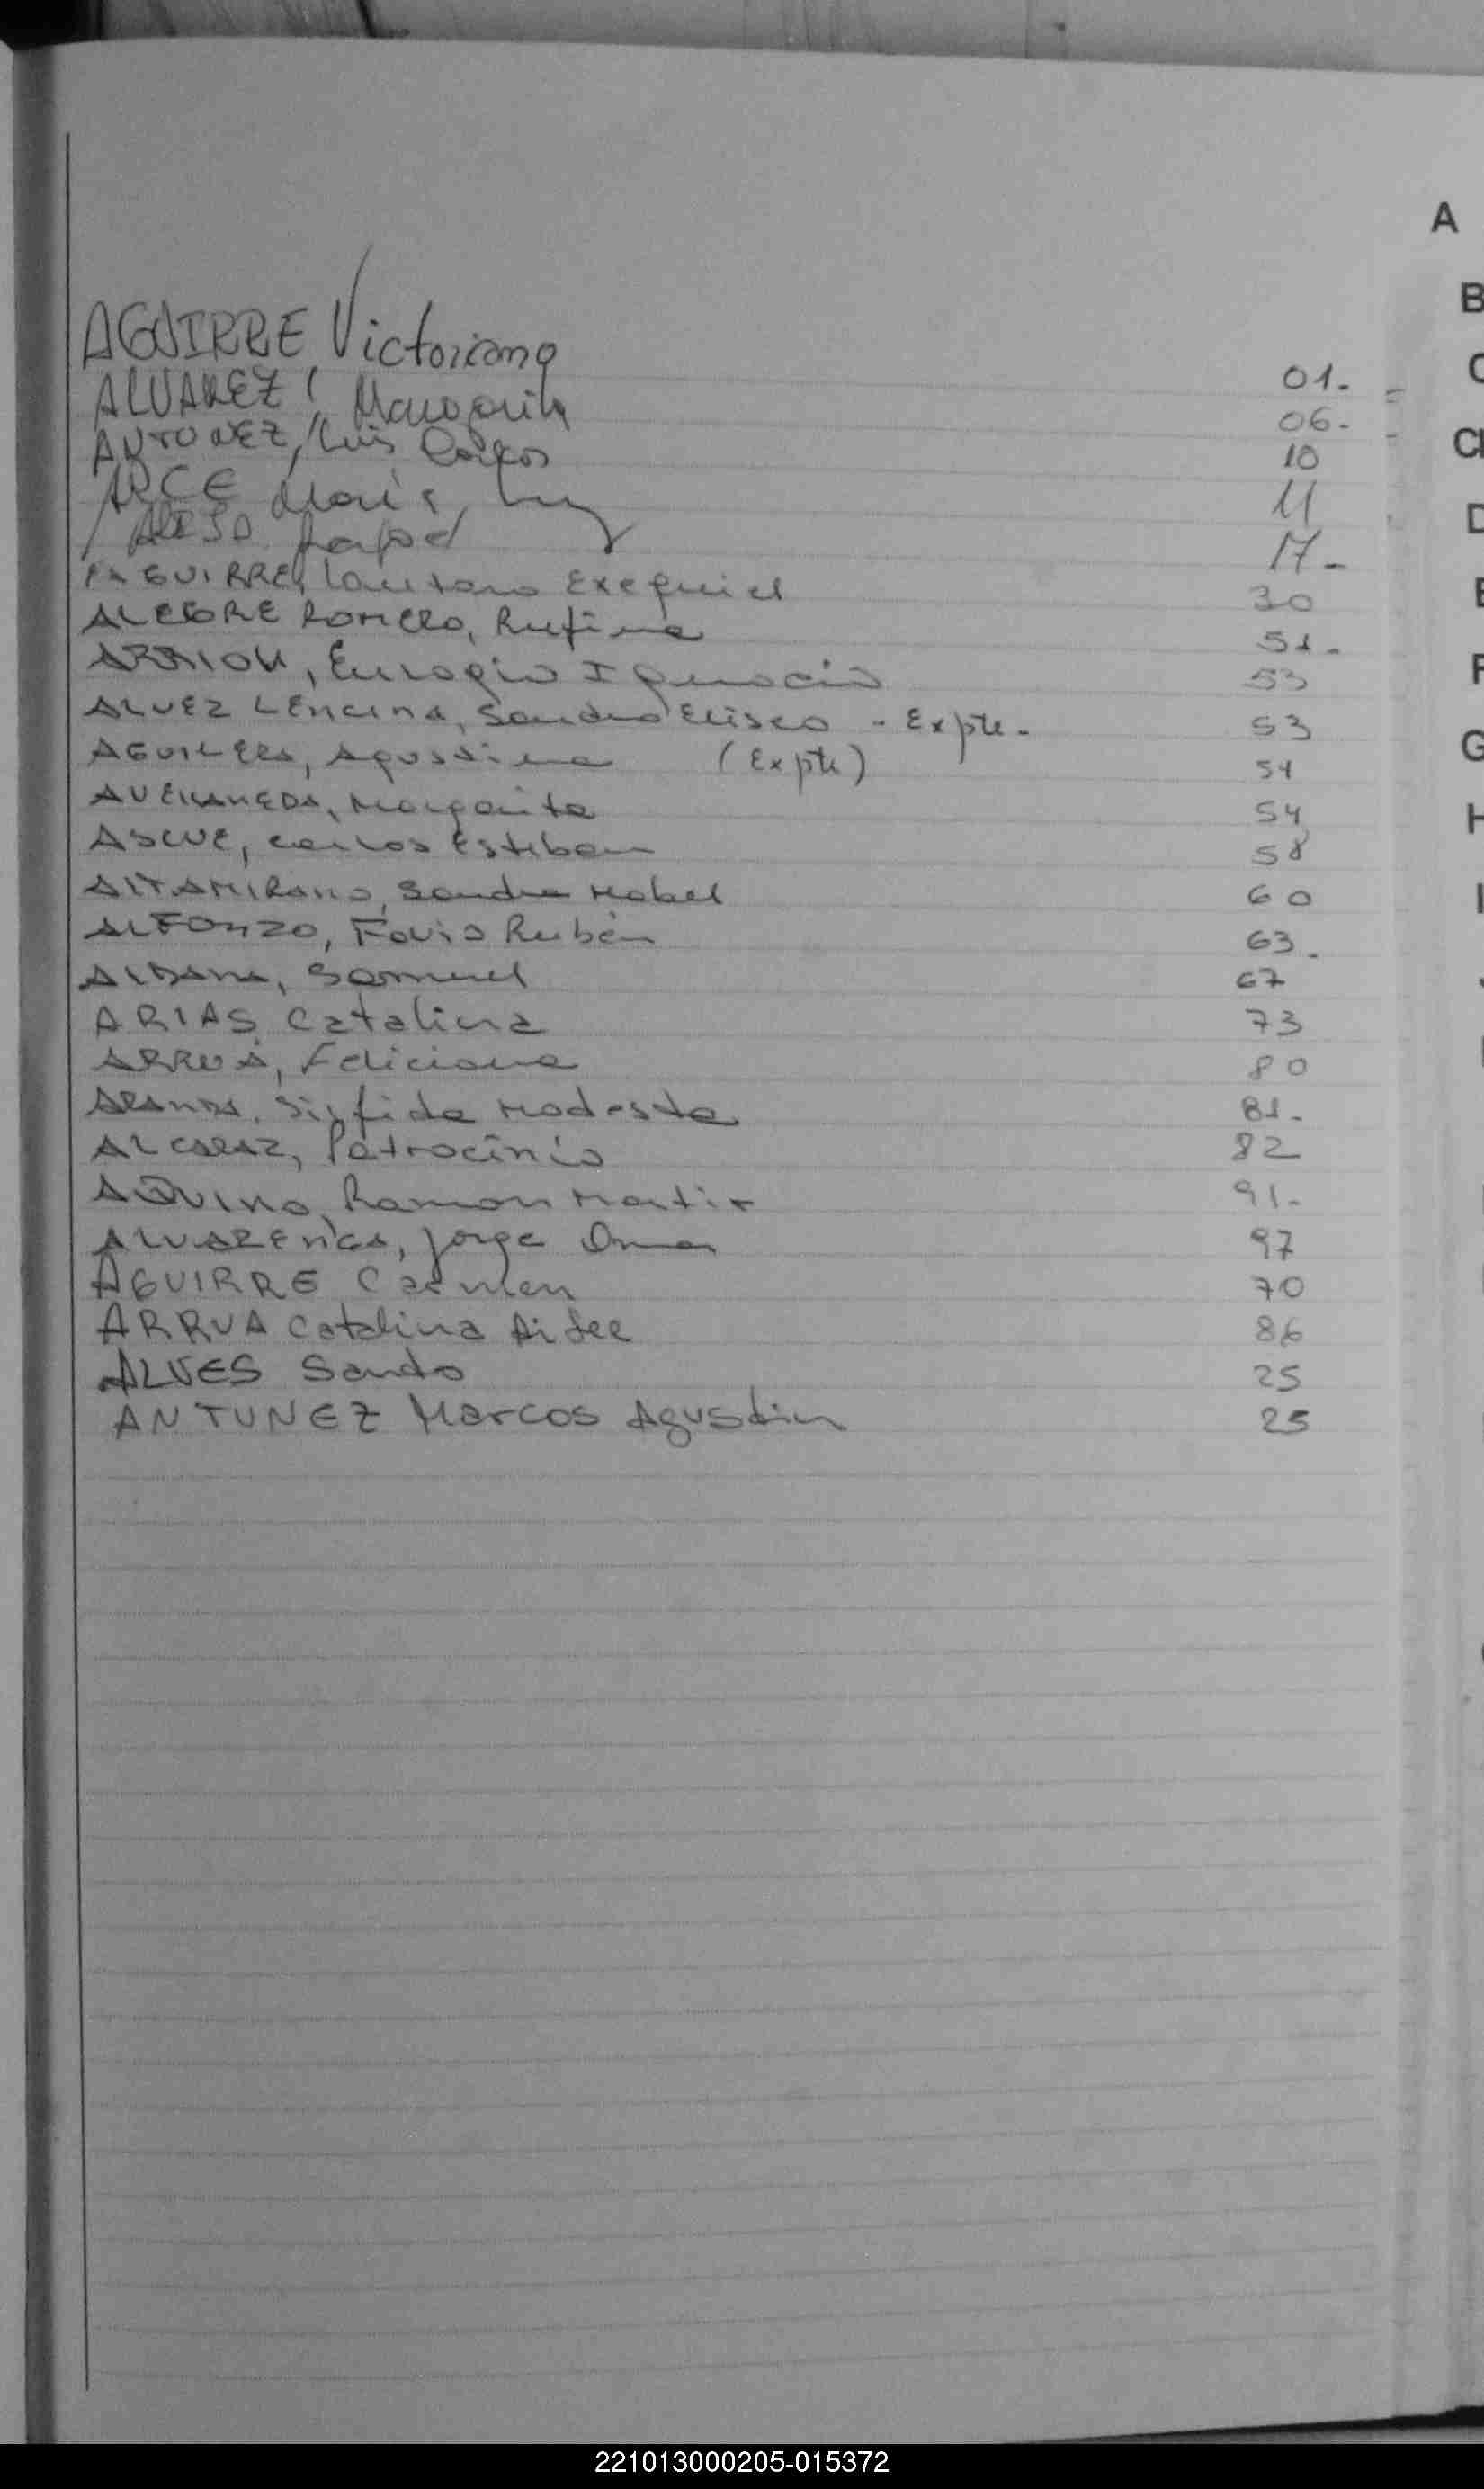 A
B
AGUIRRE, Victoriano 01.-
ALVAREZ, Margarita 06.-
C
ANTONEZ, Luis Carlos 10
CH
ARCE María Luz 11
D
Rafael 17.-
AGUIRRE, Lautaro Exequiel 30
E
ALEGRE ROMERO, Rufina 51.-
F
ARRIOLA, Eulogio Ignacio 53
ALVEZ LENCINA, Sandro Eliseo - Expte. 53
G
AGUILERA, Agustina (Expte) 54
AVELLANEDA, Margarita 54
H
Carlos Esteban 58
I
ALTAMIRANO, Sandra Mabel 60
ALFONZO, Favio Rubén 63.
ALDANA, Samuel 67
ARIAS, Catalina 73
ARRUA, Feliciana 80
ARANDA, Modesta 81.-
ALCARAZ, Patrocinio 82
AQUINO, Ramon Martin 91.-
ALVARENGA, Jorge Omar 97
AGUIRRE Carmen 70
ARRUA Catalina Aidee 86
ALVES Santo 25
ANTUNEZ Marcos Agustin 25
221013000205-015372